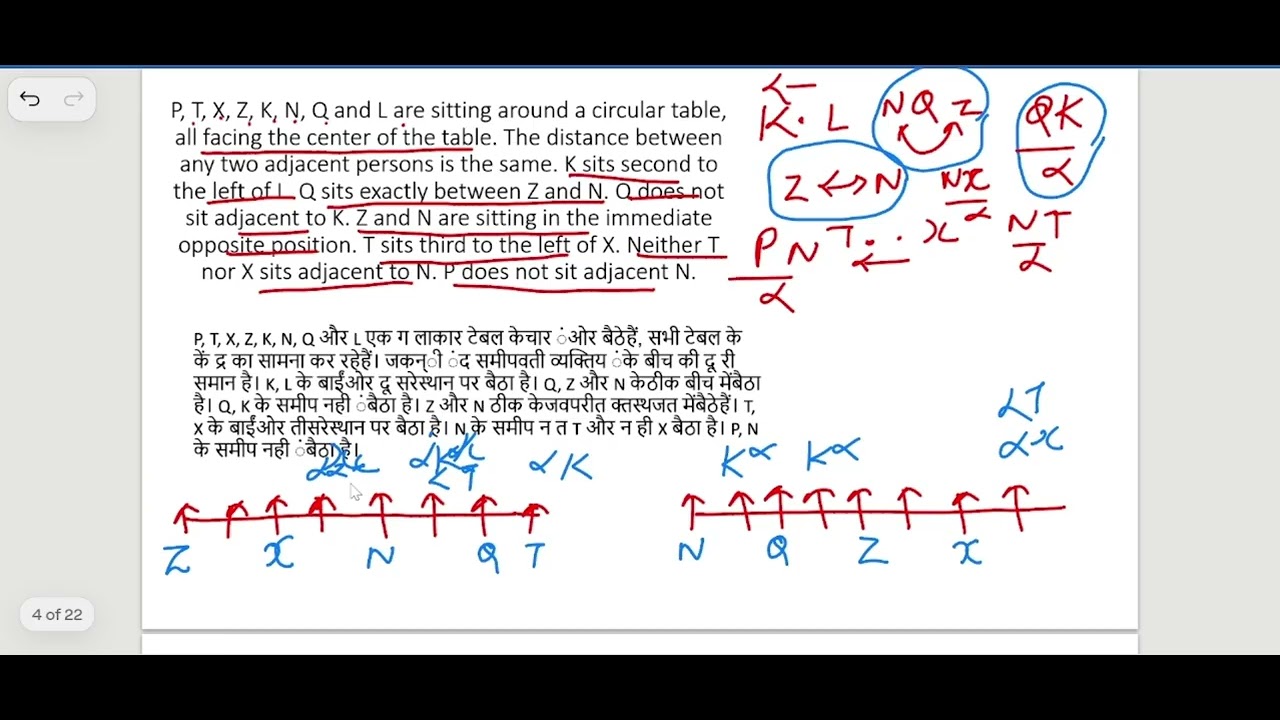 P, T, X, Z, K, N, Q and L are sitting around a circular table,
all facing the center of the table. The distance between
any two adjacent persons is the same. K sits second to
the left of L. Q sits exactly between Z and N. Q does not
sit adjacent to K. Z and N are sitting in the immediate
opposite position. T sits third to the left of X. Neither T
nor X sits adjacent to N. P does not sit adjacent N.
K . L
N Q Z
Q K
Z ↔ N
N X
P N
T . . X
N T
P, T, X, Z, K, N, Q और L एक ग लाकार टेबल केचार ंओर बैठेहैं, सभी टेबल के
कें द्र का सामना कर रहेहैं। जकन्ी ंद समीपवती व्यक्तिय ंके बीच की दू री
समान है। K, L के बाईंओर दू सरेस्थान पर बैठा है। Q, Z और N केठीक बीच मेंबैठा
है। Q, K के समीप नही ंबैठा है। Z और N ठीक केजवपरीत क्तस्थजत मेंबैठेहैं। T,
X के बाईंओर तीसरेस्थान पर बैठा है। N के समीप न त T और न ही X बैठा है। P, N
के समीप नही ंबैठा है।
α K
K α K α
α T
α X
Z X N Q T
N Q Z X
4 of 22